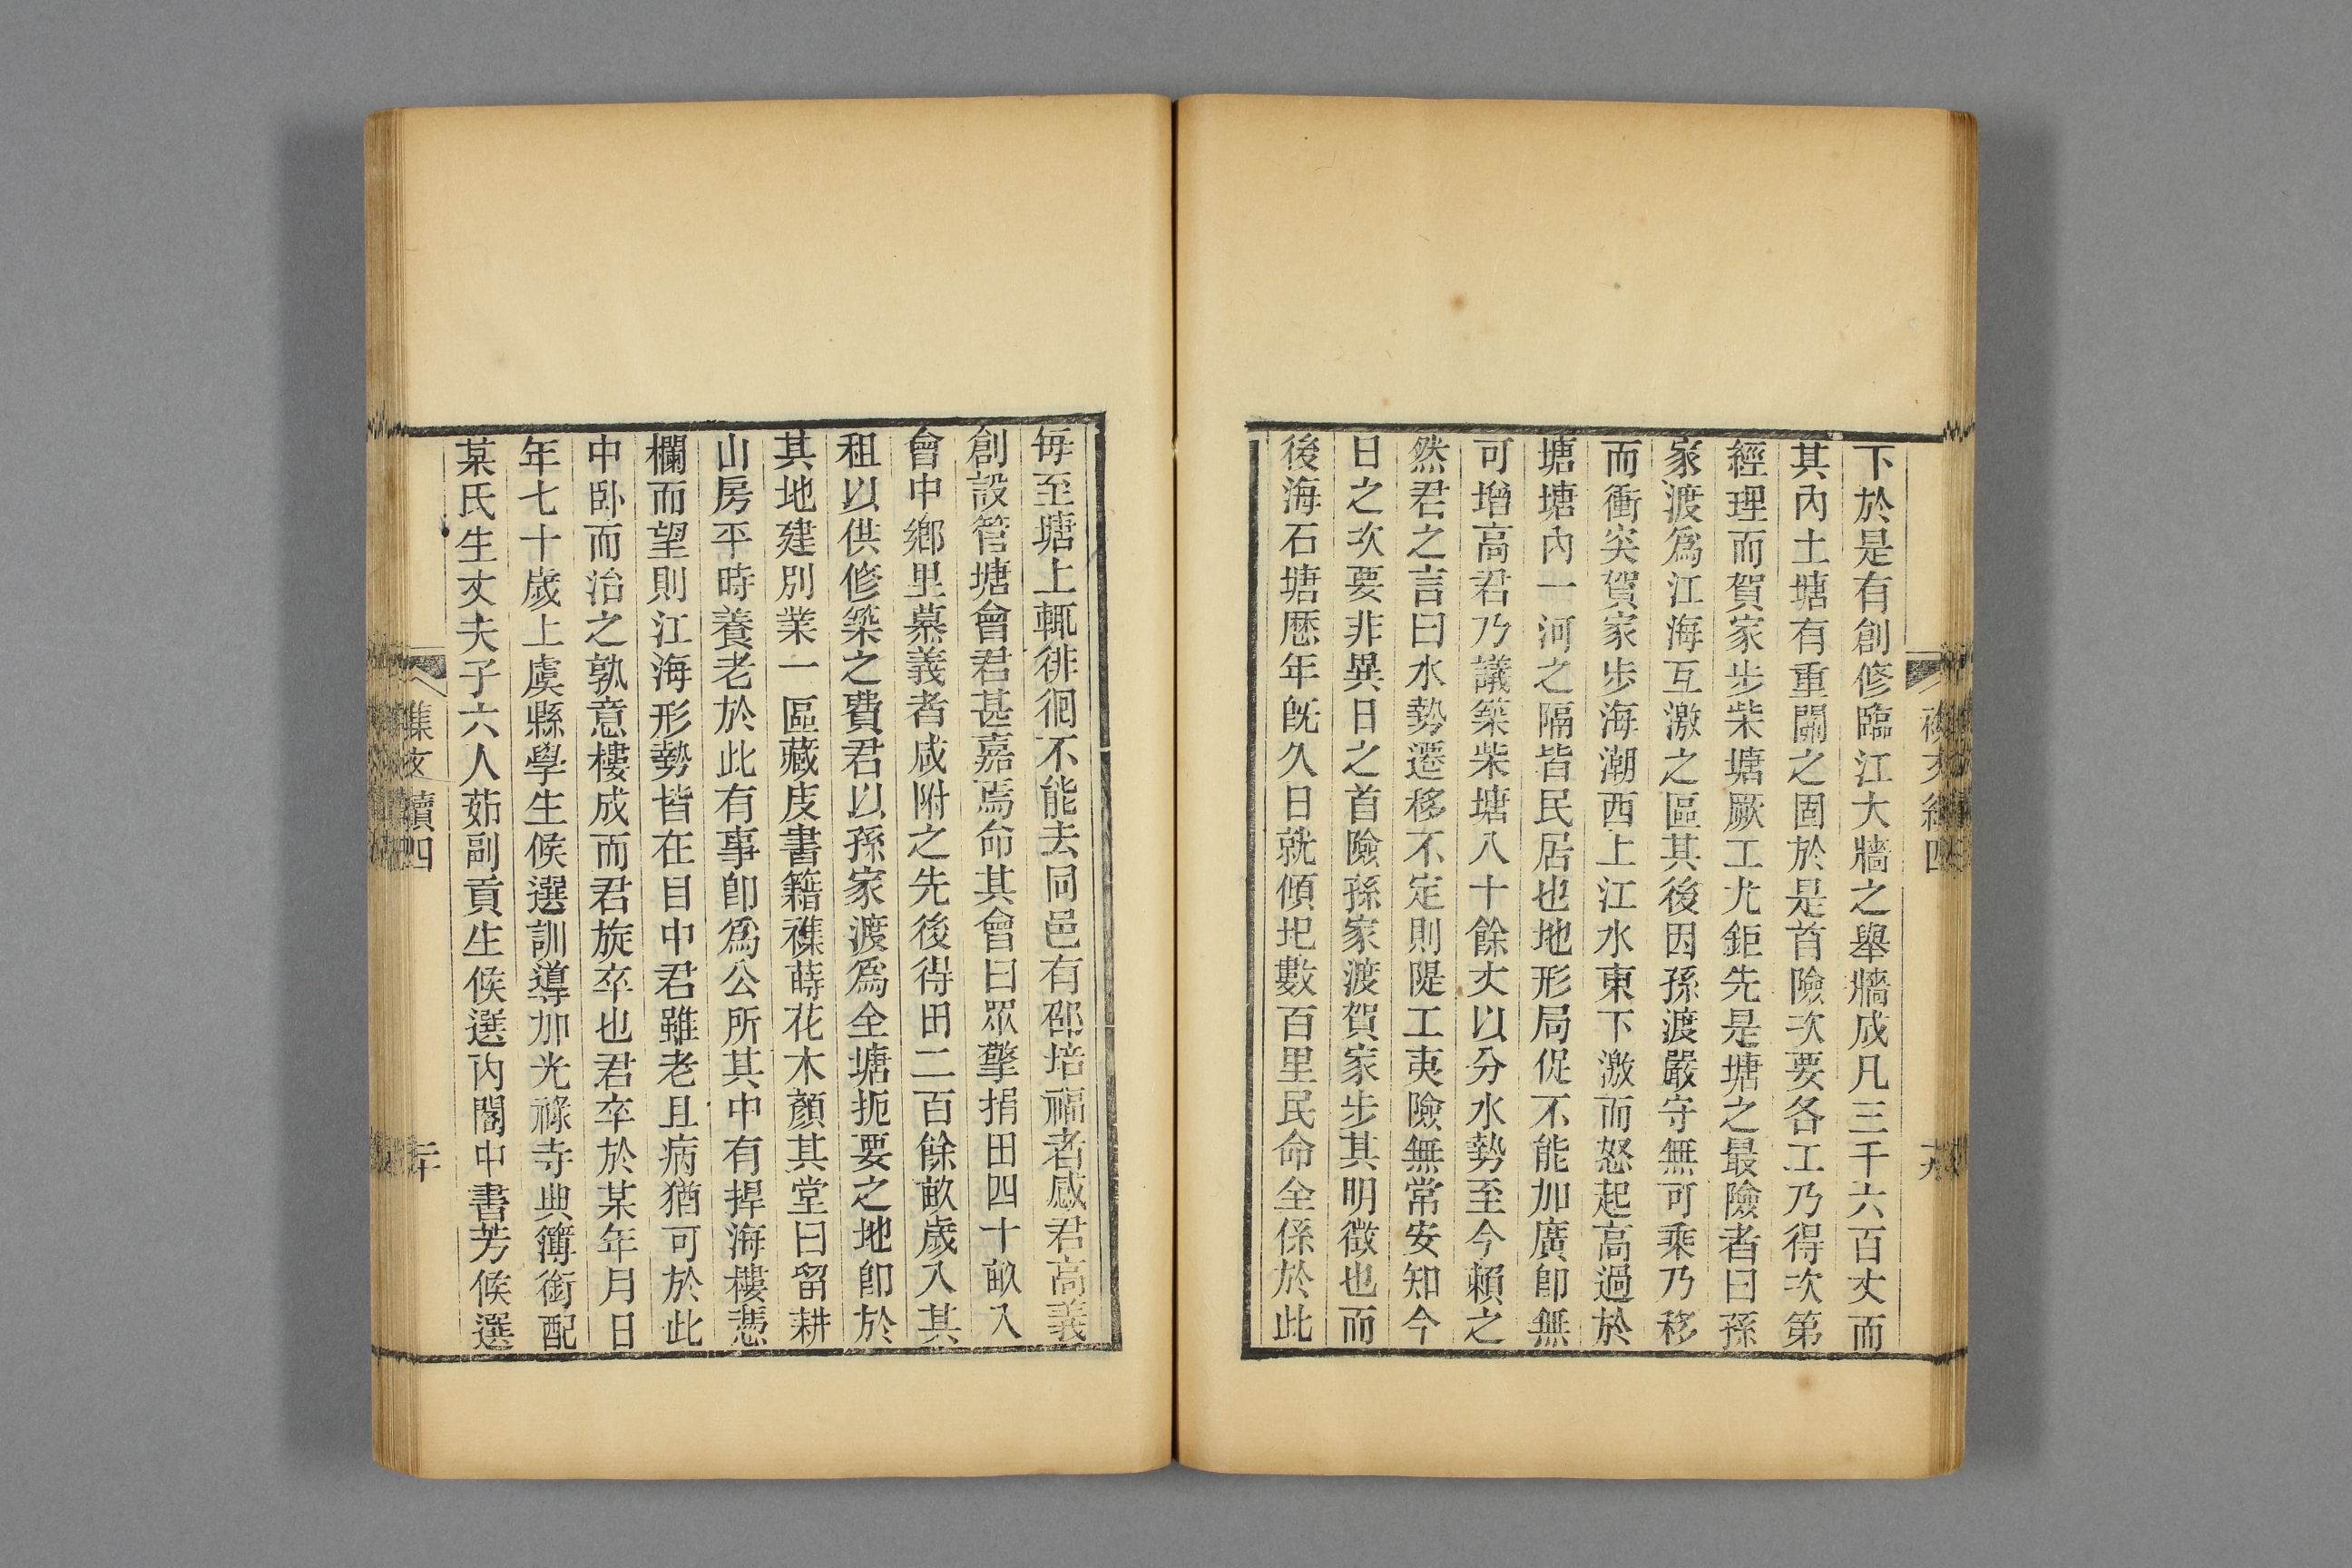 下於是有創修臨江大牆之舉牆成凡三千六百丈而
其內土塘有重關之固於是首險次要各工乃得次第
經理而賀家步柴塘厥工尤鉅先是塘之最險者曰孫
家渡爲江海互激之區其後因孫渡嚴守無可乘乃移
而衝突賀家步海潮西上江水東下激而怒起高過於
塘塘內一河之隔皆民居也地形局促不能加廣卽無
可增高君乃議築柴塘八十餘丈以分水勢至今賴之
然君之言曰水勢遷移不定則隄工夷險無常安知今
日之次要非異日之首險孫家渡賀家步其明徵也而
後海石塘歷年旣久日就傾圯數百里民命全係於此
每至塘上輒徘徊不能去同邑有邵培福者感君高義
創設管塘會君甚嘉焉命其會曰眾擎捐田四十畝入
會中鄉里慕義者咸附之先後得田二百餘畝歲入其
租以供修築之費君以孫家渡爲全塘扼要之地卽於
其地建別業一區藏庋書籍襍蒔花木顏其堂曰留耕
山房平時養老於此有事卽爲公所其中有捍海樓憑
欄而望則江海形勢皆在目中君雖老且病猶可於此
中卧而治之孰意樓成而君旋卒也君卒於某年月日
年七十歲上虞縣學生候選訓導加光祿寺典簿銜配
某氏生丈夫子六人茹副貢生候選內閣中書芳候選
襍文 續四